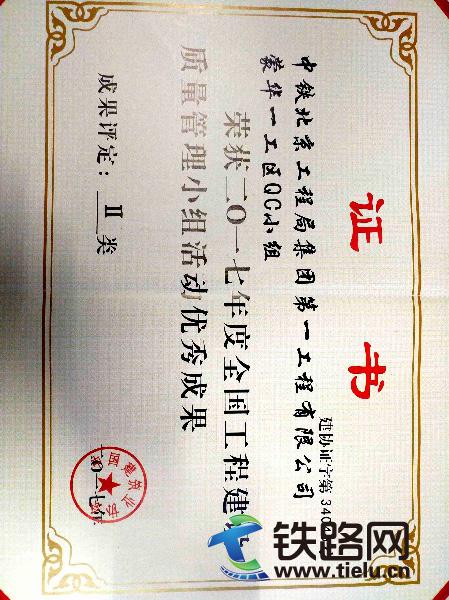 证书
建协证字第340
中铁北京工程局集团第一工程有限公司
蒙华一工区QC小组
荣获二〇一七年度全国工程建
质量管理小组活动优秀成果
成果评定：Ⅱ类
二〇一七年
铁路网
www.tielu.cn